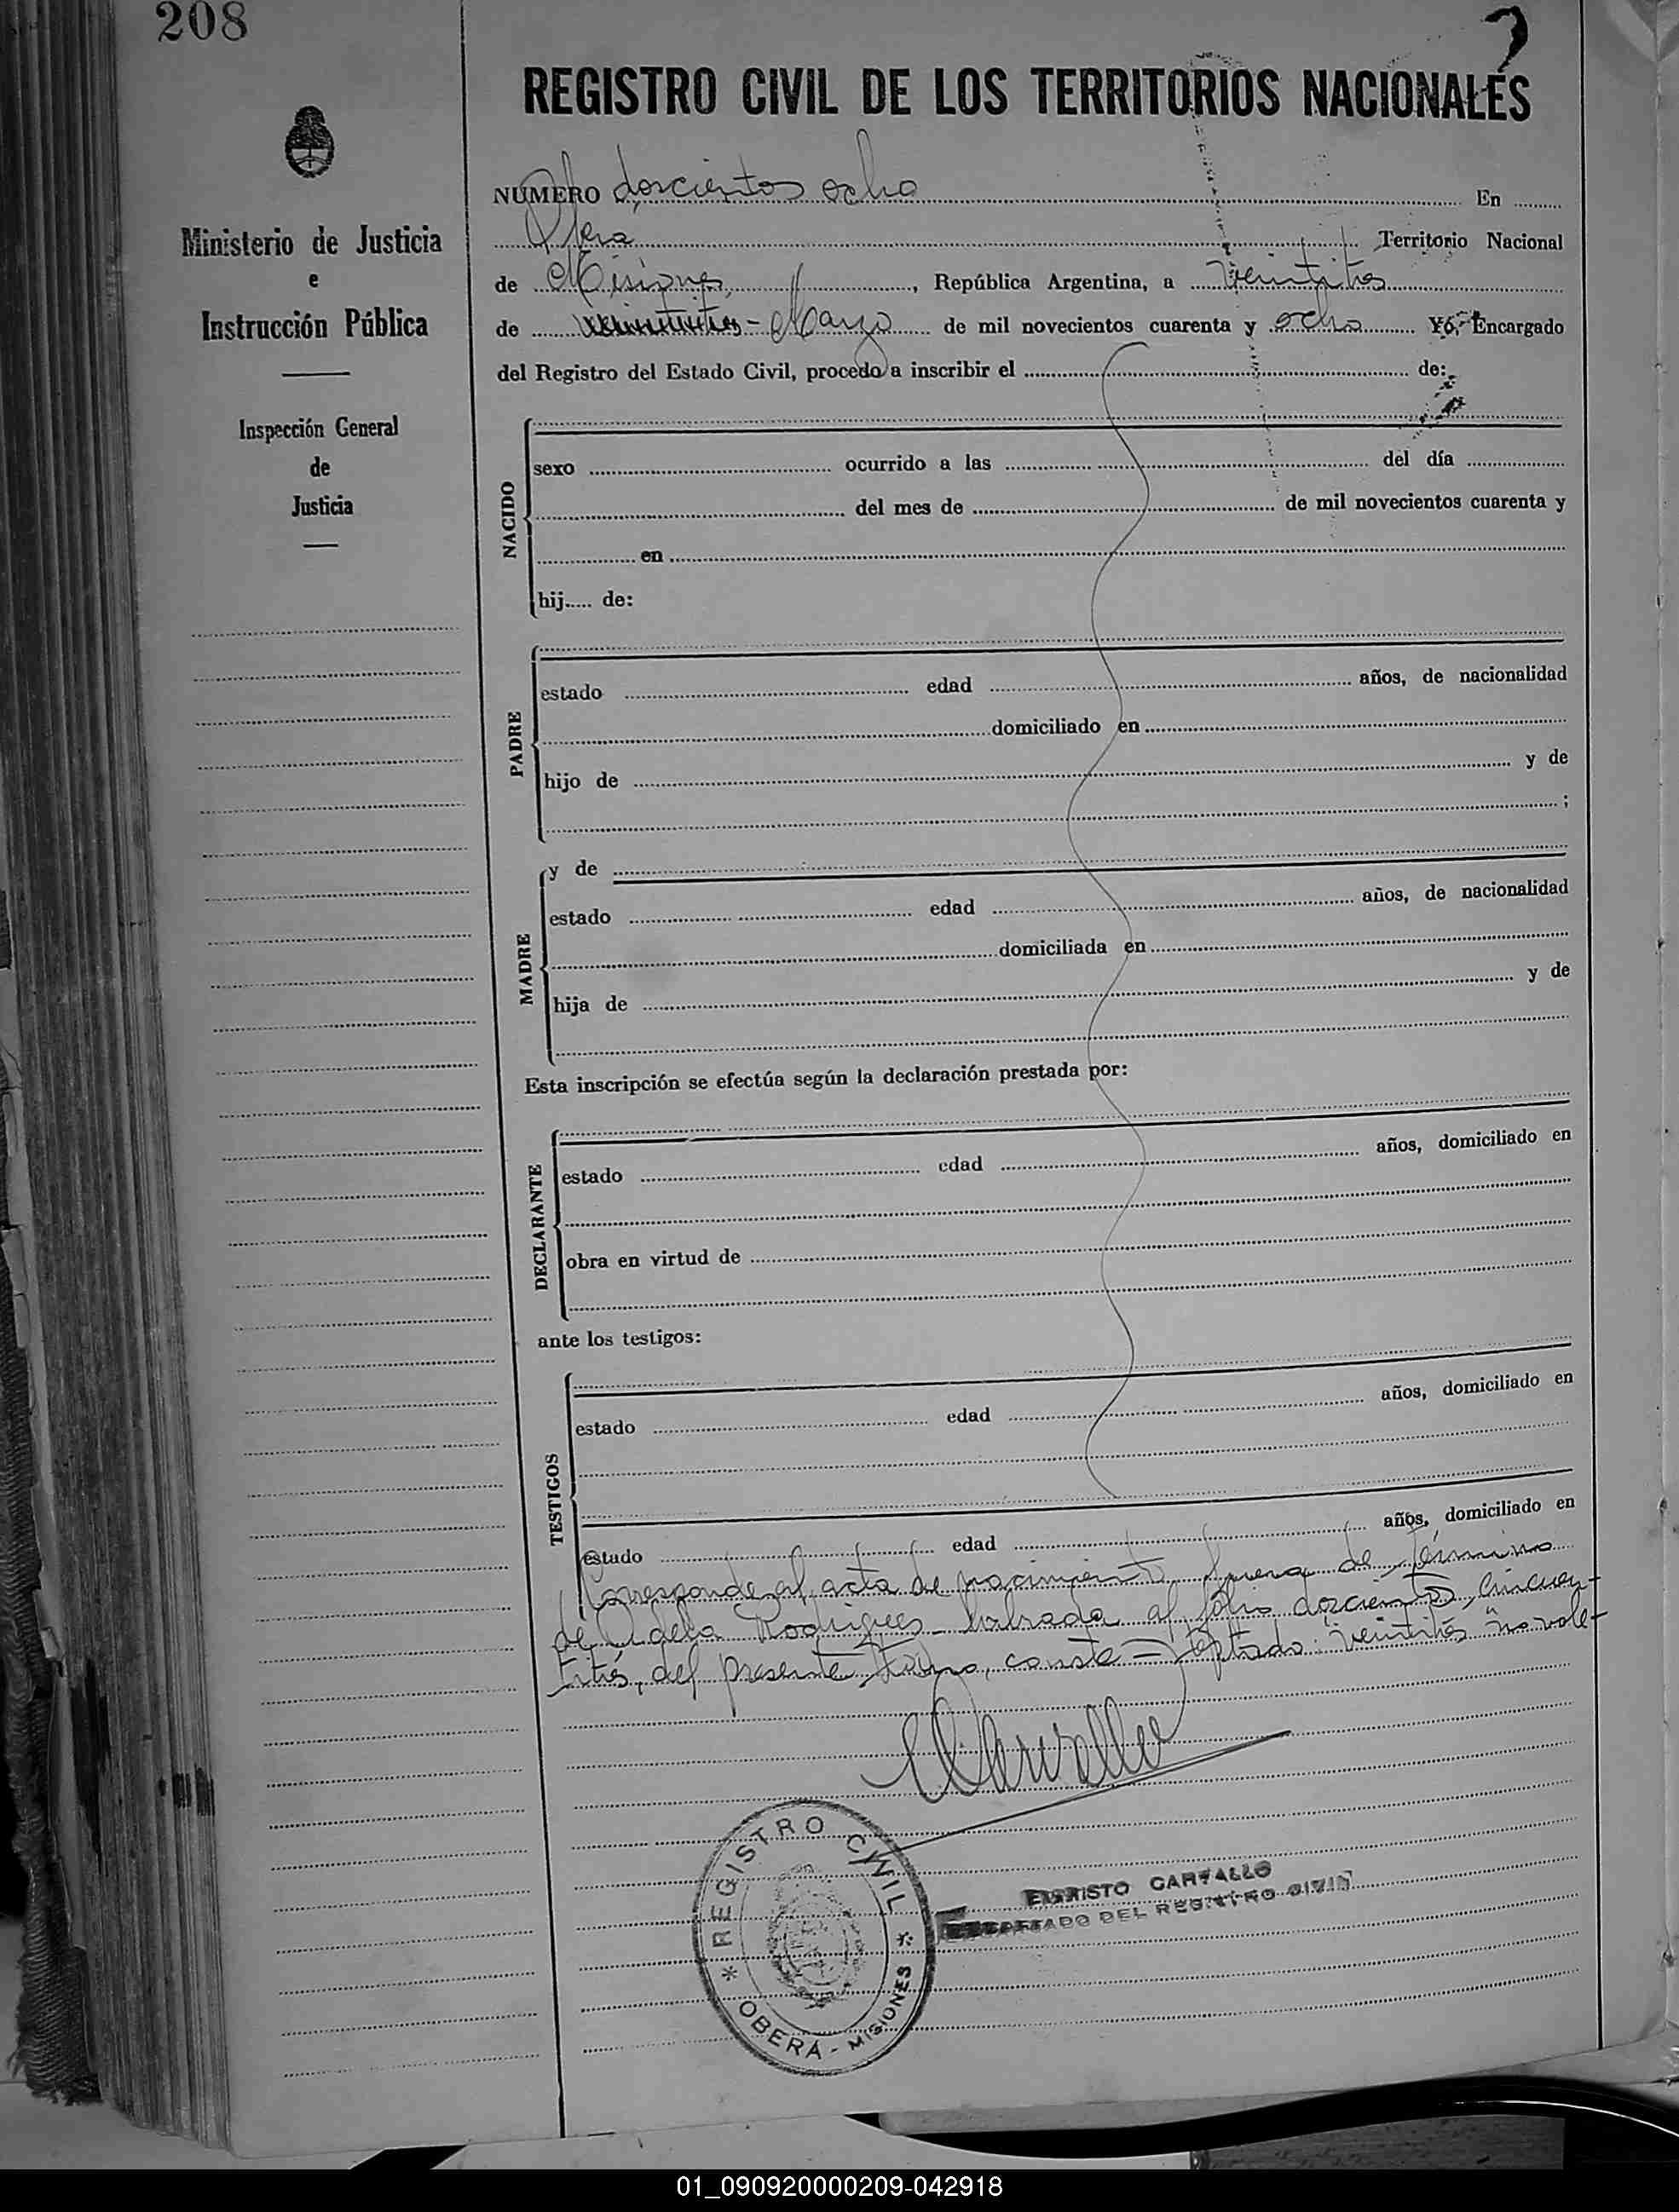 208
REGISTRO CIVIL DE LOS TERRITORIOS NACIONALES
Ministerio de Justicia
e
Instrucción Pública
Inspección General
de
Justicia
NUMERO doscientos ocho En
Oberá Territorio Nacional
de Misiones, República Argentina, a veintitres
de veintitres - Marzo de mil novecientos cuarenta y ocho Yo, Encargado
del Registro del Estado Civil, procedo a inscribir el de:
NACIDO
sexo ocurrido a las del día
del mes de de mil novecientos cuarenta y
en
hij..... de:
PADRE
estado edad años, de nacionalidad
domiciliado en
hijo de y de
;
MADRE
y de
estado edad años, de nacionalidad
domiciliada en
hija de y de
Esta inscripción se efectúa según la declaración prestada por:
DECLARANTE
estado edad años, domiciliado en
obra en virtud de
ante los testigos:
TESTIGOS
estado edad años, domiciliado en
estado edad años, domiciliado en
Corresponde al acta de nacimiento fuera de término
de Adela Rodrigues labrada al folio doscientos, cincuen-
titrés, del presente tomo, conste - Testado: "veintitrés" no vale-
REGISTRO CIVIL
OBERÁ - MISIONES
EVARISTO CARVALLO
ENCARGADO DEL REGISTRO CIVIL
01_090920000209-042918